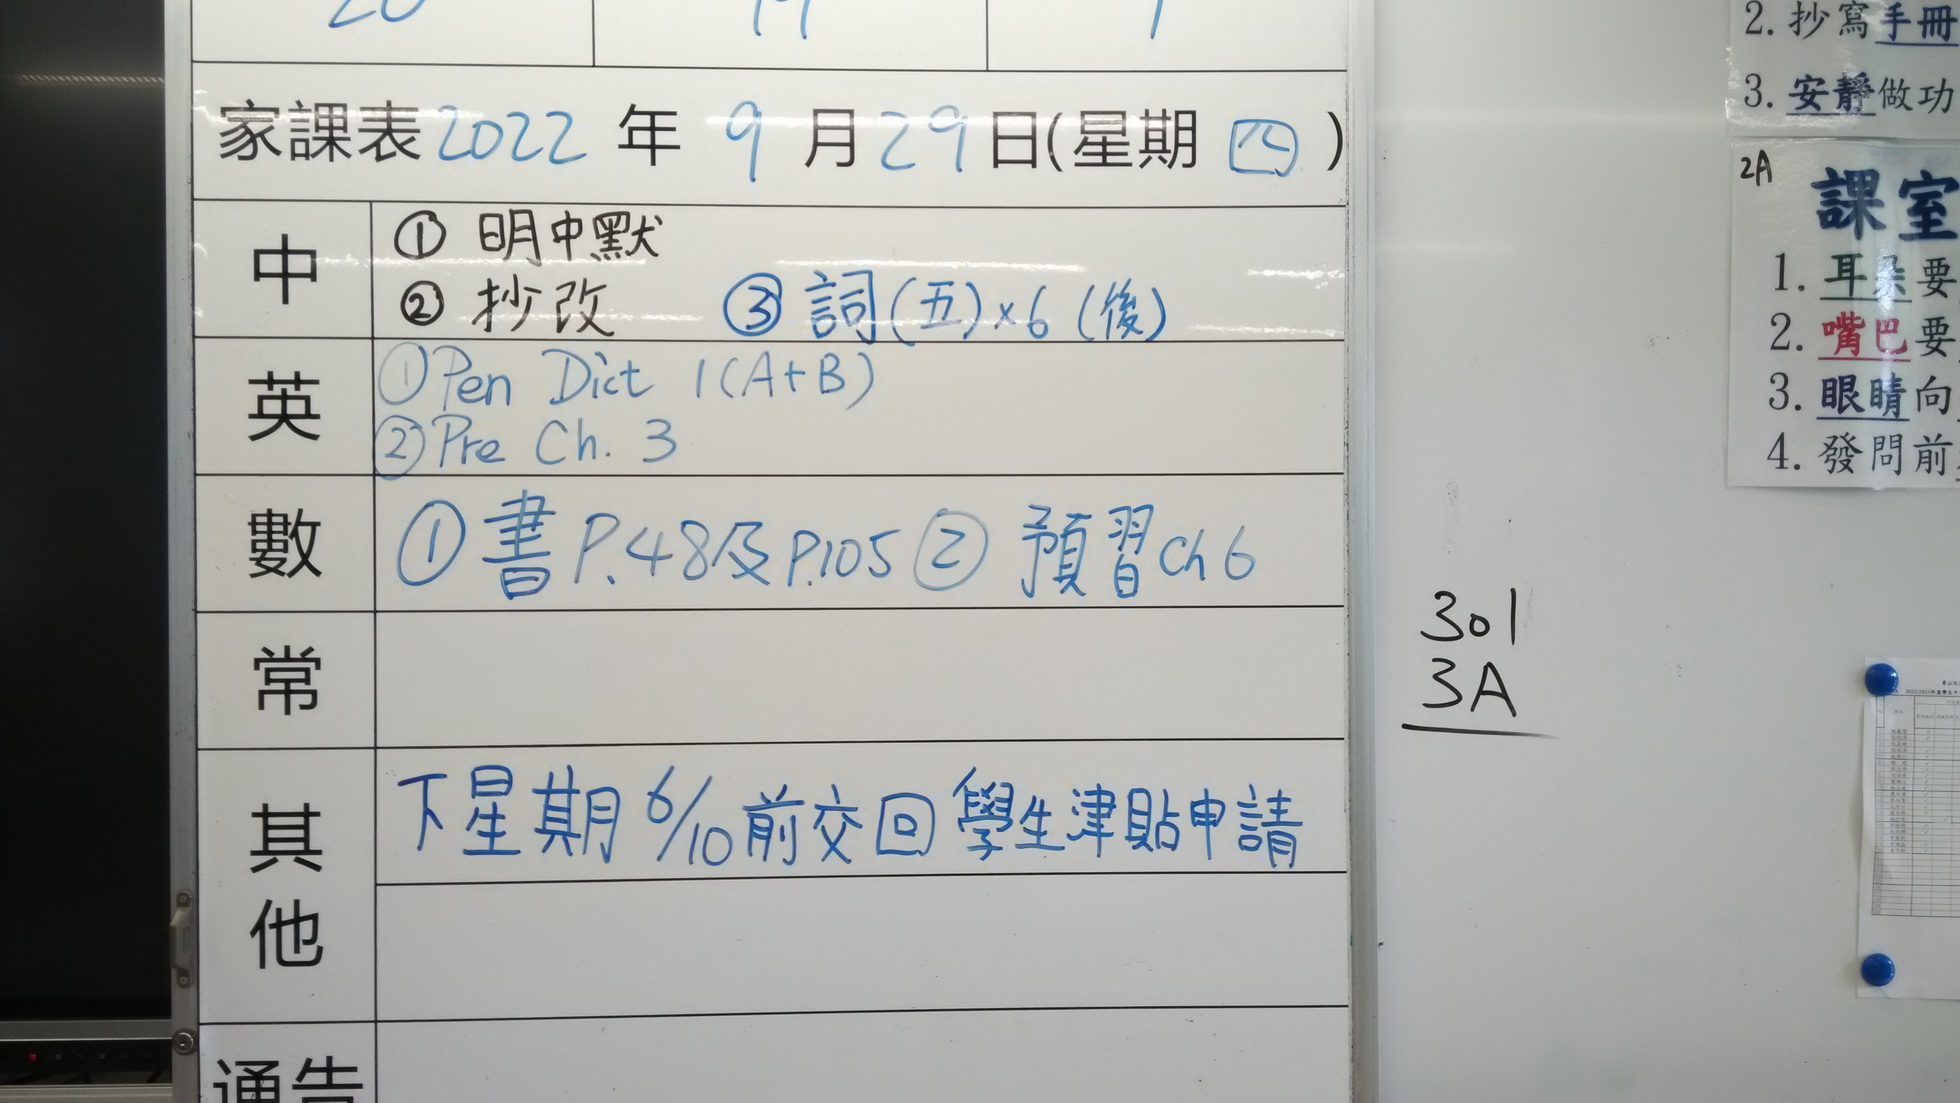 家課表 2022 年 9 月 29 日(星期 四)
中
① 明中默
② 抄改 ③ 詞(五)×6 (後)
英
① Pen Dict 1(A+B)
② Pre Ch. 3
數
① 書 P.48及P.105 ② 預習 Ch 6
常
其他
下星期 6/10 前交回 學生津貼申請
通告
301
3A
2. 抄寫手冊
3. 安靜做功
2A
課室
1. 耳朵要
2. 嘴巴要
3. 眼睛向
4. 發問前